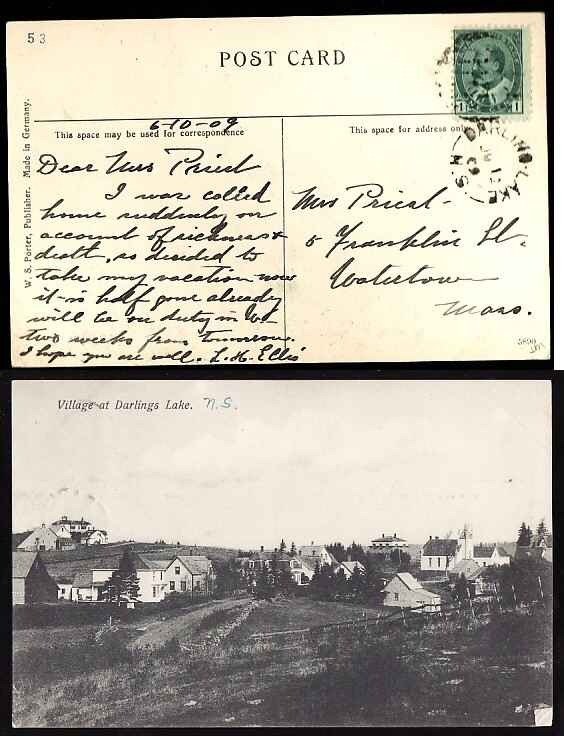 53
POST CARD
1 1
DARLING LAKE
N.S.
W. S. Porter, Publisher. Made in Germany.
6-10-09
This space may be used for correspondence
This space for address only
Dear Mrs Priest
I was called
home suddenly on
account of sickness &
death, so decided to
take my vacation now
it is half gone already
will be on duty in
two weeks from tomorrow.
I hope you are well. L. H. Ellis
Mrs Priest
5 Franklin St.
Watertown
Mass.
Village at Darlings Lake. N.S.